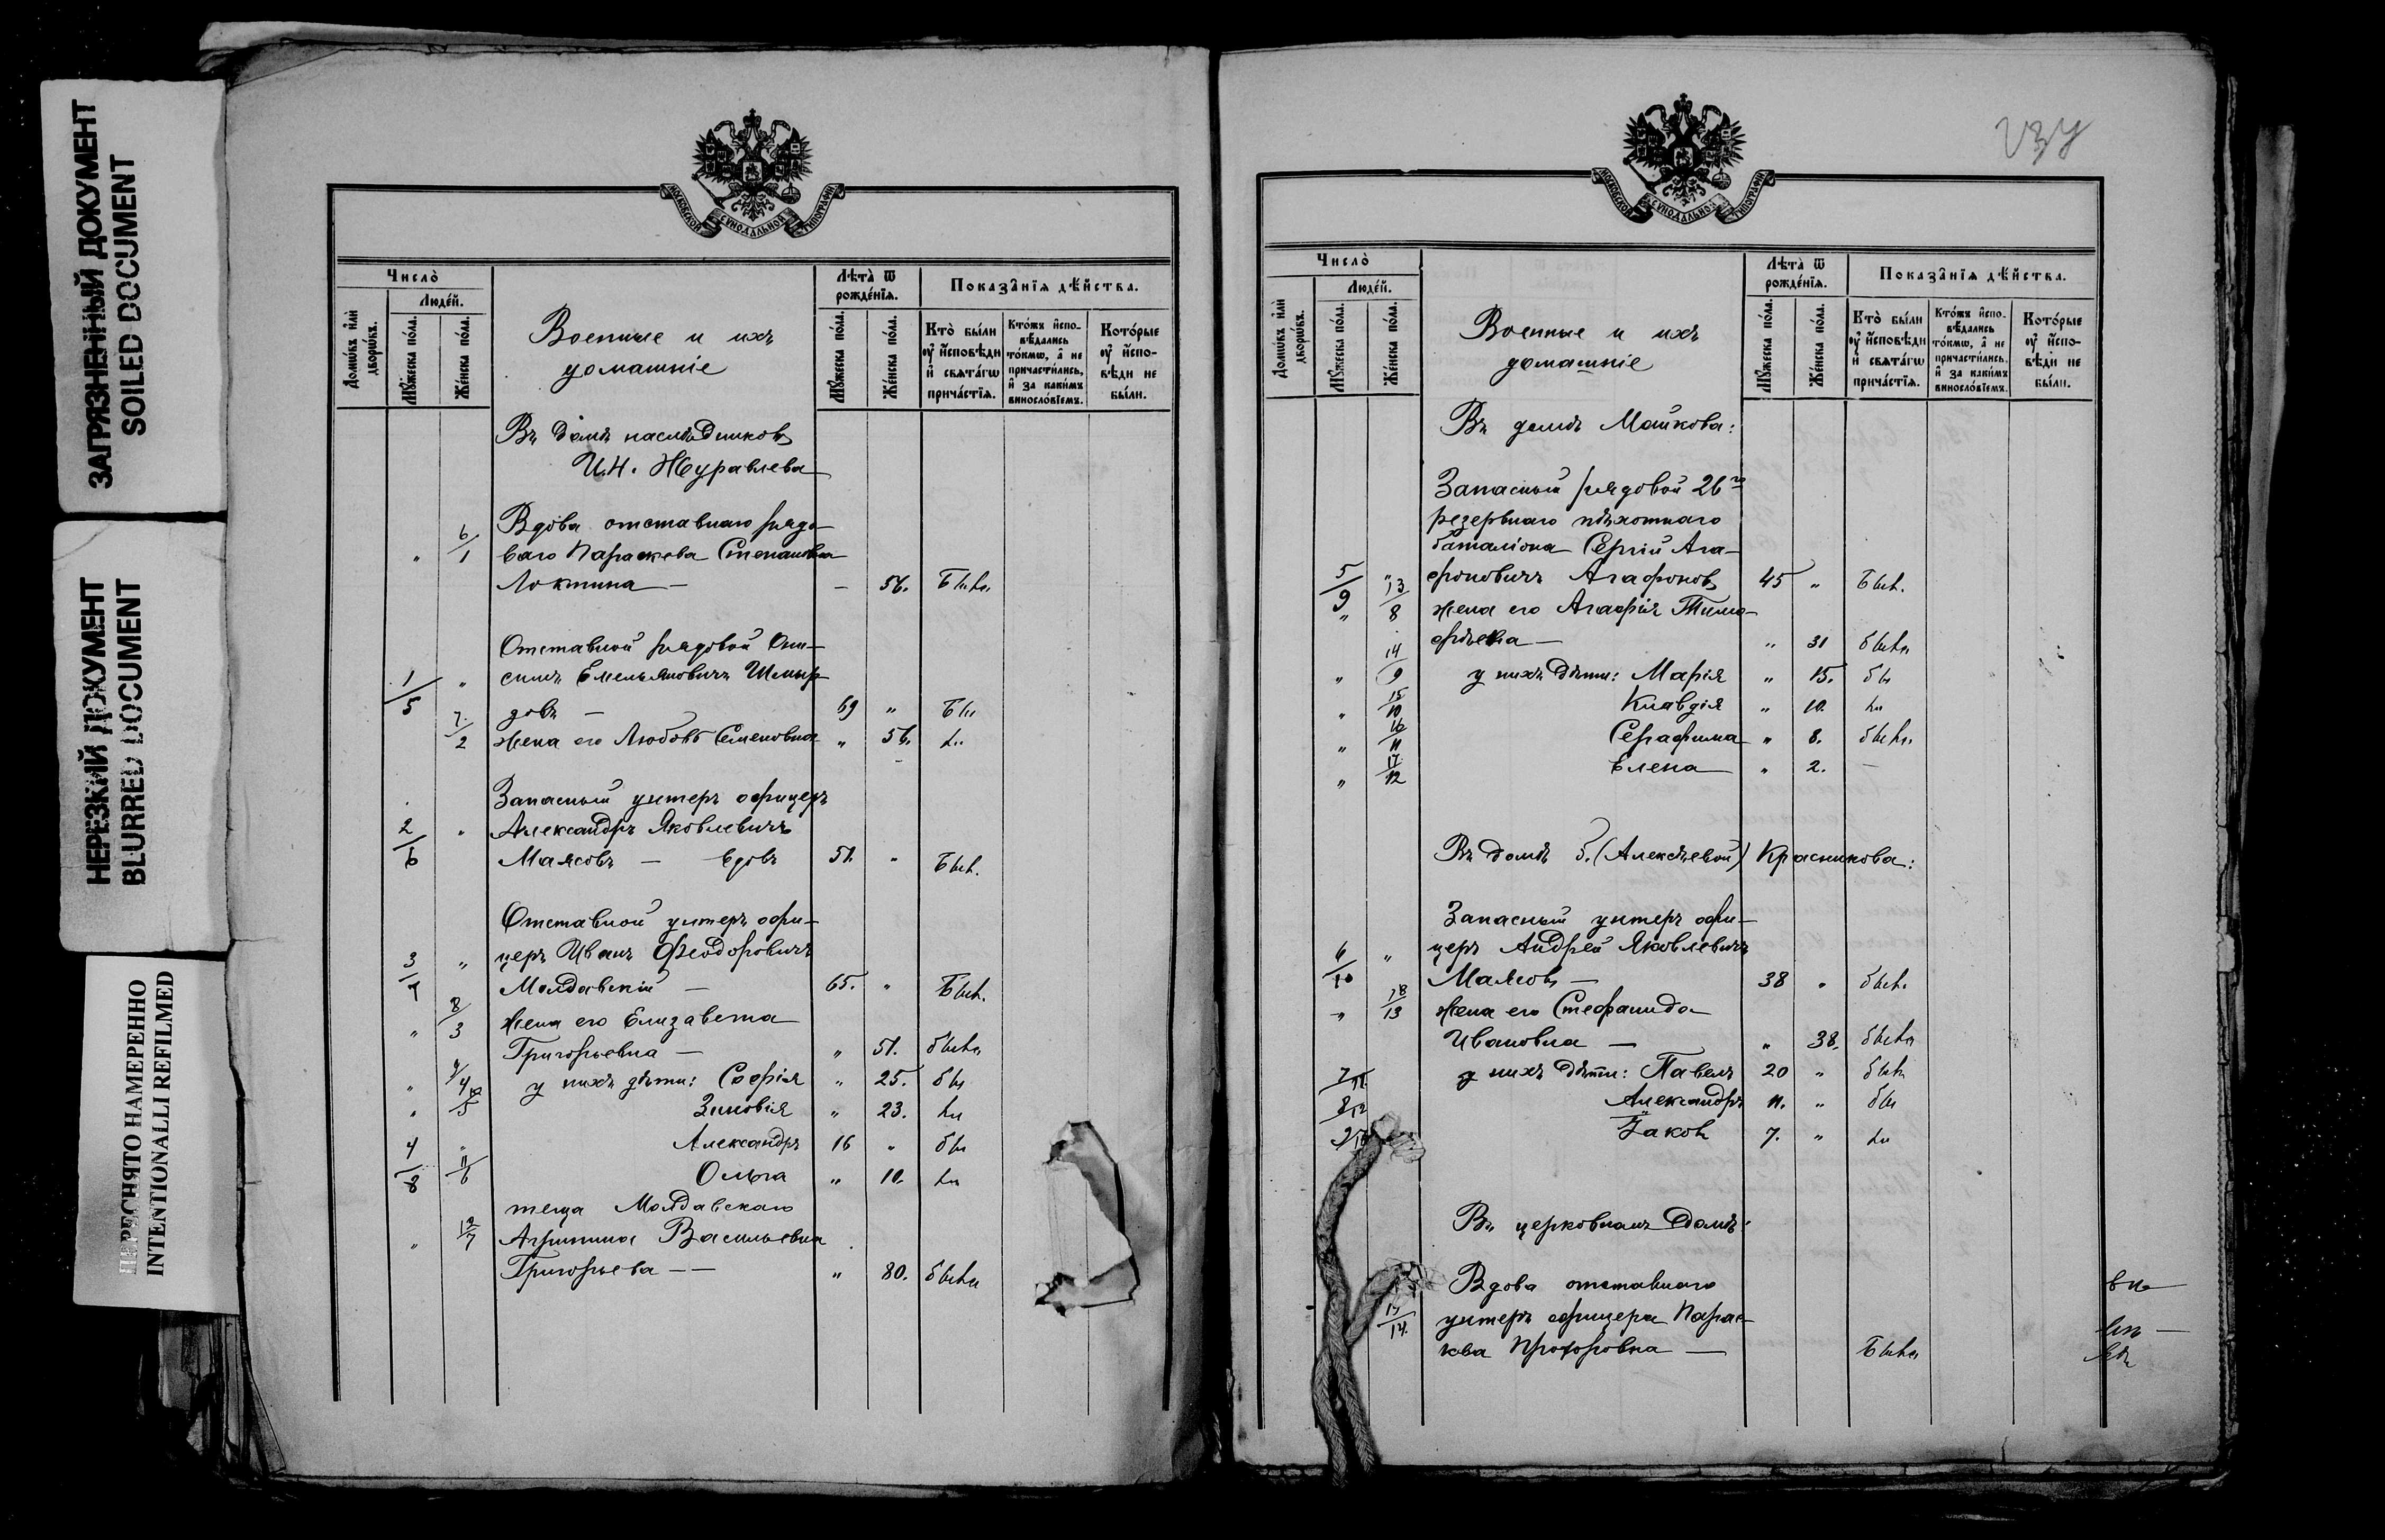 ЗАГРЯЗНЕННЫЙ ДОКУМЕНТ
SOILED DOCUMENT
НЕРЕЗКИЙ ДОКУМЕНТ
BLURRED DOCUMENT
ПЕРЕСНЯТО НАМЕРЕННО
INTENTIONALLI REFILMED
МОСКОВСКОЙ СѴНОДАЛЬНОЙ ТИПОГРАФІИ
Число̀
Люде́й.
Домѡ́въ и҆лѝ дворѡ́въ.
Мꙋ́жеска по́ла.
Же́нска по́ла.
Военные и ихъ
домашніе
Лѣта̀ ѿ рожде́нїѧ.
Мꙋ́жеска по́ла.
Же́нска по́ла.
Показа̑нїѧ дѣ́йства.
Кто̀ бы́ли ᲂу҆ и҆сповѣ́ди и҆ свѧта́гѡ прича́стїѧ.
Кто́жъ и҆спо-вѣ́дались то́кмѡ, а҆ не причасти́лись, и҆ за каки́мъ виносло́вїемъ.
Кото́рые ᲂу҆ и҆спо-вѣ́ди не бы́ли.
Въ домѣ наслѣдниковъ
И.Н. Журавлева
Вдова отставнаго рядо-
" 6/1 ваго Параскева Степановна
Локтина — — 56. Была
Отставной рядовой Они-
1/5 " симъ Емельяновичъ Шмыр-
довъ — 69 " Бы
7/2 жена его Любовь Семеновна " 56. ли
Запасный унтеръ офицеръ
2/6 " Александръ Яковлевичъ
Маясовъ — вдовъ 51. " Былъ.
Отставной унтеръ офи-
3/7 " церъ Иванъ Феодоровичъ
Молдавскій — 65. " Былъ.
" 8/3 жена его Елизавета
Григорьевна — " 51. была
" 9/4 у нихъ дѣти: Софія " 25. бы
" 10/5 Зиновія " 23. ли
4/8 " Александръ 16 " бы
11/6 Ольга " 10. ли
теща Молдавскаго
" 12/7 Агрипина Васильевна
Григорьева — — " 80. была
МОСКОВСКОЙ СѴНОДАЛЬНОЙ ТИПОГРАФІИ
Число̀
Люде́й.
Домѡ́въ и҆лѝ дворѡ́въ.
Мꙋ́жеска по́ла.
Же́нска по́ла.
Военные и ихъ
домашніе
Лѣта̀ ѿ рожде́нїѧ.
Мꙋ́жеска по́ла.
Же́нска по́ла.
Показа̑нїѧ дѣ́йства.
Кто̀ бы́ли ᲂу҆ и҆сповѣ́ди и҆ свѧта́гѡ прича́стїѧ.
Кто́жъ и҆спо-вѣ́дались то́кмѡ, а҆ не причасти́лись, и҆ за каки́мъ виносло́вїемъ.
Кото́рые ᲂу҆ и҆спо-вѣ́ди не бы́ли.
Въ домѣ Машкова:
Запасный рядовой 26го
резервнаго пѣхотнаго
баталіона Сергій Ага-
5/9 " фоновичъ Агафоновъ 45 " Былъ.
" 13/8 жена его Агафія Тимо-
фѣевна — " 31 была
" 14/9 у нихъ дѣти: Марія " 15. бы
" 15/10 Клавдія " 10. ли
" 16/11 Серафима " 8. была
" 17/12 Елена " 2. —
Въ домѣ б. (Алексѣевой) Красникова:
Запасный унтеръ офи-
6/10 " церъ Андрей Яковлевичъ
Маясовъ — 38 " былъ
" 18/13 жена его Стефанида
Ивановна — " 38. была
7/11 у нихъ дѣти: Павелъ 20 " былъ
8/12 Александръ 11. " бы
Іаковъ 7. " ли
Въ церковномъ домѣ:
Вдова отставнаго
19/14. унтеръ офицера Парас-
кова Прохоровна — Была